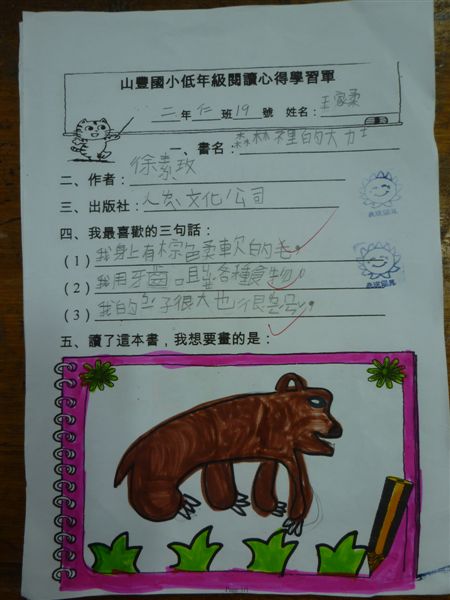 山豐國小低年級閱讀心得學習單
二年仁班19號 姓名:王家柔
一、書名:森林裡的大力士
二、作者:徐素玫
三、出版社:人類文化公司
四、我最喜歡的三句話:
(1)我身上有棕色柔軟的毛。
(2)我用牙齒咀嚼各種食物。
(3)我的鼻子很大也很靈。
五、讀了這本書,我想要畫的是: